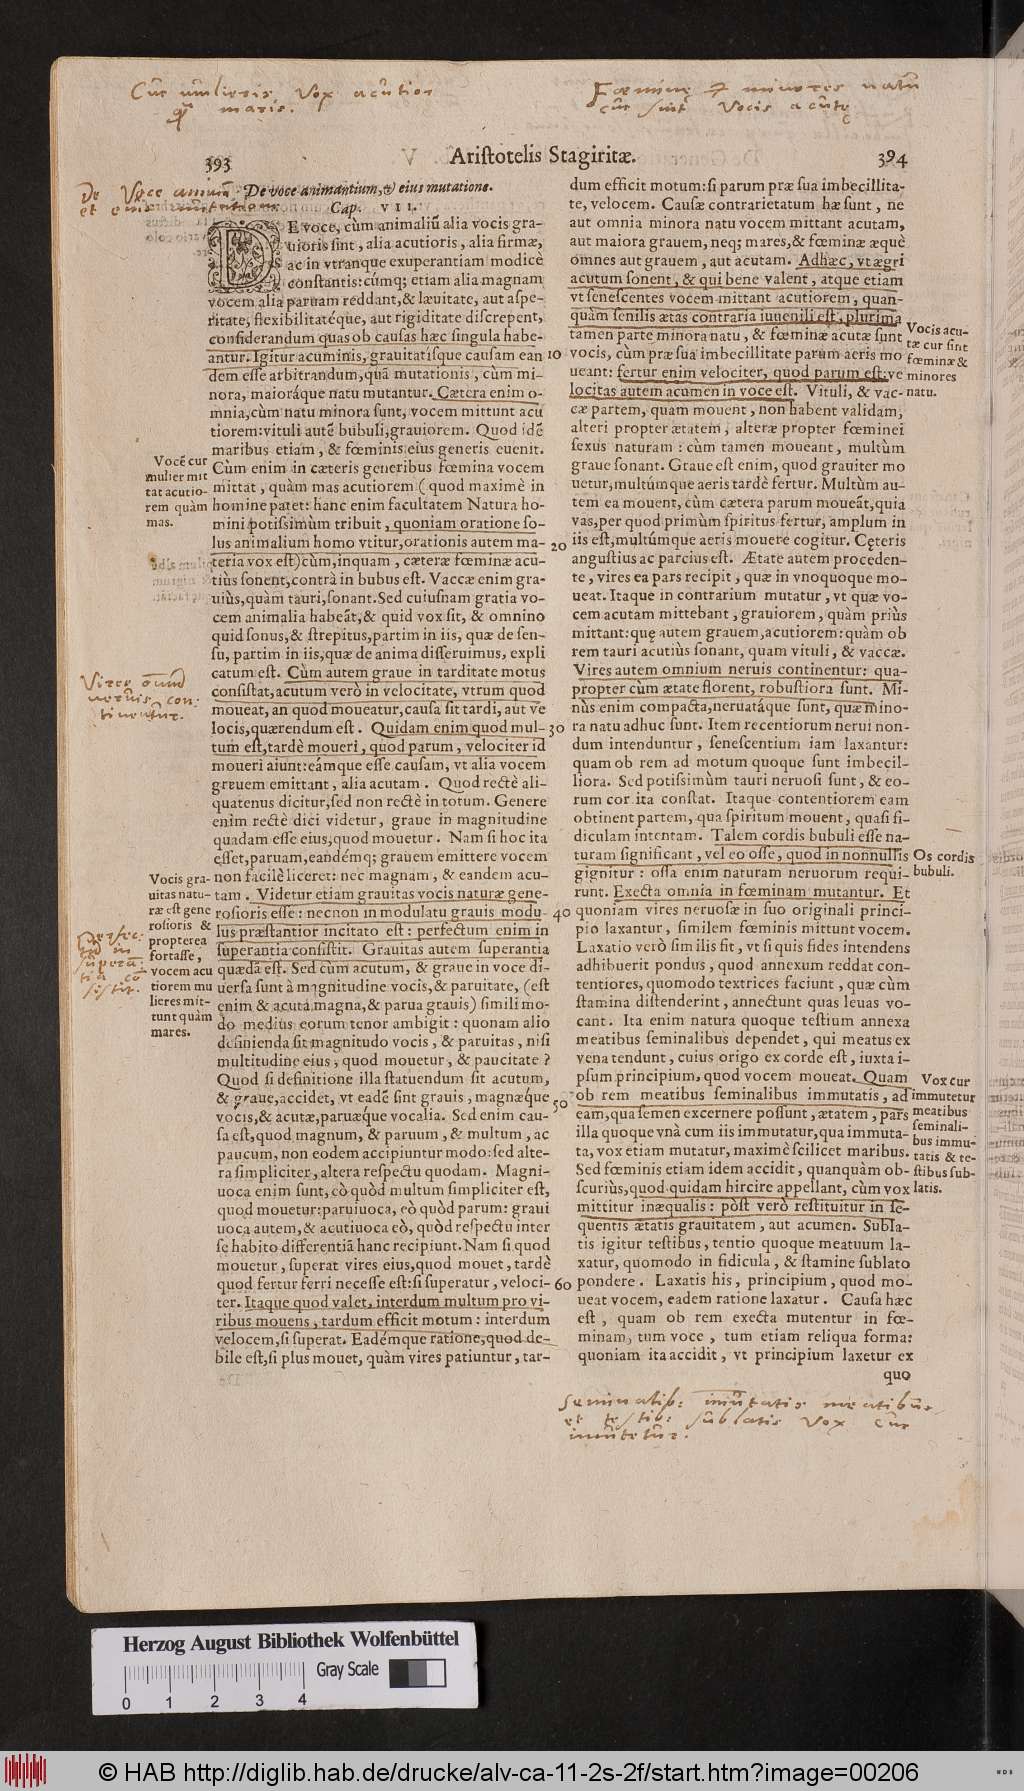 Cur mulieris Vox acutior
quā maris.
Fœminę & minores natu
cur sint Vocis acutę
393
Aristotelis Stagiritæ.
394
De Voce animā
et eius mutatione
De voce animantium, & eius mutatione.
Cap. VII.
DE voce, cùm animaliū alia vocis gra-
uioris sint, alia acutioris, alia firmæ,
ac in vtranque exuperantiam modicè
constantis: cúmq; etiam alia magnam
vocem alia paruam reddant, & læuitate, aut aspe-
ritate, flexibilitatéque, aut rigiditate discrepent,
considerandum quas ob causas hæc singula habe-
antur. Igitur acuminis, grauitatísque causam ean
dem esse arbitrandum, quā mutationis, cùm mi-
nora, maioráque natu mutantur. Cætera enim o-
mnia, cùm natu minora sunt, vocem mittunt acu
tiorem: vituli autē bubuli, grauiorem. Quod idē
maribus etiam, & fœminis eius generis euenit.
Cùm enim in cæteris generibus fœmina vocem
mittat, quàm mas acutiorem (quod maximè in
homine patet: hanc enim facultatem Natura ho-
mini potissimùm tribuit, quoniam oratione so-
lus animalium homo vtitur, orationis autem ma-
teria vox est) cùm, inquam, cæteræ fœminæ acu-
tiùs sonent, contrà in bubus est. Vaccæ enim gra-
uiùs, quàm tauri, sonant. Sed cuiusnam gratia vo-
cem animalia habeāt, & quid vox sit, & omnino
quid sonus, & strepitus, partim in iis, quæ de sen-
su, partim in iis, quæ de anima disseruimus, expli
catum est. Cùm autem graue in tarditate motus
consistat, acutum verò in velocitate, vtrum quod
moueat, an quod moueatur, causa sit tardi, aut ve
locis, quærendum est. Quidam enim quod mul-
tum est, tardè moueri, quod parum, velociter id
moueri aiunt: eámque esse causam, vt alia vocem
greuem emittant, alia acutam. Quod rectè ali-
quatenus dicitur, sed non rectè in totum. Genere
enim rectè dici videtur, graue in magnitudine
quadam esse eius, quod mouetur. Nam si hoc ita
esset, paruam, eandémq; grauem emittere vocem
non facilè liceret: nec magnam, & eandem acu-
tam. Videtur etiam grauitas vocis naturæ gene-
rosioris esse: necnon in modulatu grauis modu-
lus præstantior incitato est: perfectum enim in
superantia consistit. Grauitas autem superantia
quædā est. Sed cùm acutum, & graue in voce di-
uersa sunt à magnitudine vocis, & paruitate, (est
enim & acuta magna, & parua grauis) simili mo-
do medius eorum tenor ambigit: quonam alio
definienda sit magnitudo vocis, & paruitas, nisi
multitudine eius, quod mouetur, & paucitate?
Quod si definitione illa statuendum sit acutum,
& graue, accidet, vt eadē sint grauis, magnæque
vocis, & acutæ, paruæque vocalia. Sed enim cau-
sa est, quod magnum, & paruum, & multum, ac
paucum, non eodem accipiuntur modo: sed alte-
ra simpliciter, altera respectu quodam. Magni-
uoca enim sunt, eò quòd multum simpliciter est,
quod mouetur: paruiuoca, eò quòd parum: graui
uoca autem, & acutiuoca eò, quòd respectu inter
se habito differentiā hanc recipiunt. Nam si quod
mouetur, superat vires eius, quod mouet, tardè
quod fertur ferri necesse est: si superatur, veloci-
ter. Itaque quod valet, interdum multum pro vi-
ribus mouens, tardum efficit motum: interdum
velocem, si superat. Eadémque ratione, quod de-
bile est, si plus mouet, quàm vires patiuntur, tar-
Vocē cur
mulier mit
tat acutio-
rem quàm
mas.
Vires omniū
neruis con-
tinentur.
Vocis gra-
uitas natu-
ræ est gene
rosioris &
propterea
fortasse,
vocem acu
tiorem mu
lieres mit-
tunt quàm
mares.
Perfec-
tio in
superā-
tia cō-
sistit.
10
20
30
40
50
60
dum efficit motum: si parum præ sua imbecillita-
te, velocem. Causæ contrarietatum hæ sunt, ne
aut omnia minora natu vocem mittant acutam,
aut maiora grauem, neq; mares, & fœminæ æquè
omnes aut grauem, aut acutam. Adhæc, vt ægri
acutum sonent, & qui bene valent, atque etiam
vt senescentes vocem mittant acutiorem, quan-
quàm senilis ætas contraria iuuenili est, plurima
tamen parte minora natu, & fœminæ acutæ sunt
vocis, cùm præ sua imbecillitate parum aeris mo
ueant: fertur enim velociter, quod parum est: ve
locitas autem acumen in voce est. Vituli, & vac-
cæ partem, quam mouent, non habent validam,
alteri propter ætatem, alteræ propter fœminei
sexus naturam: cùm tamen moueant, multùm
graue sonant. Graue est enim, quod grauiter mo
uetur, multúmque aeris tardè fertur. Multùm au-
tem ea mouent, cùm cætera parum moueāt, quia
vas, per quod primùm spiritus fertur, amplum in
iis est, multúmque aeris mouere cogitur. Cęteris
angustius ac parcius est. Ætate autem proceden-
te, vires ea pars recipit, quæ in vnoquoque mo-
ueat. Itaque in contrarium mutatur, vt quæ vo-
cem acutam mittebant, grauiorem, quàm priùs
mittant: quę autem grauem, acutiorem: quàm ob
rem tauri acutiùs sonant, quam vituli, & vaccæ.
Vires autem omnium neruis continentur: qua-
propter cùm ætate florent, robustiora sunt. Mi-
nùs enim compacta, neruatáque sunt, quæ mino-
ra natu adhuc sunt. Item recentiorum nerui non-
dum intenduntur, senescentium iam laxantur:
quam ob rem ad motum quoque sunt imbecil-
liora. Sed potissimùm tauri neruosi sunt, & eo-
rum cor ita constat. Itaque contentiorem eam
obtinent partem, qua spiritum mouent, quasi fi-
diculam intentam. Talem cordis bubuli esse na-
turam significant, vel eo osse, quod in nonnullis
gignitur: ossa enim naturam neruorum requi-
runt. Execta omnia in fœminam mutantur. Et
quoniam vires neruosæ in suo originali princi-
pio laxantur, similem fœminis mittunt vocem.
Laxatio verò similis fit, vt si quis fides intendens
adhibuerit pondus, quod annexum reddat con-
tentiores, quomodo textrices faciunt, quæ cùm
stamina distenderint, annectunt quas leuas vo-
cant. Ita enim natura quoque testium annexa
meatibus seminalibus dependet, qui meatus ex
vena tendunt, cuius origo ex corde est, iuxta i-
psum principium, quod vocem moueat. Quam
ob rem meatibus seminalibus immutatis, ad
eam, qua semen excernere possunt, ætatem, pars
illa quoque vnà cum iis immutatur, qua immuta-
ta, vox etiam mutatur, maximè scilicet maribus.
Sed fœminis etiam idem accidit, quanquàm ob-
scuriùs, quod quidam hircire appellant, cùm vox
mittitur inæqualis: pòst verò restituitur in se-
quentis ætatis grauitatem, aut acumen. Subla-
tis igitur testibus, tentio quoque meatuum la-
xatur, quomodo in fidicula, & stamine sublato
pondere. Laxatis his, principium, quod mo-
ueat vocem, eadem ratione laxatur. Causa hæc
est, quam ob rem execta mutentur in fœ-
minam, tum voce, tum etiam reliqua forma:
quoniam ita accidit, vt principium laxetur ex
quo
Vocis acu-
tæ cur sint
fœminæ &
minores
natu.
Os cordis
bubuli.
Vox cur
immutetur
meatibus
seminali-
bus immu-
tatis & te-
stibus sub-
latis.
Seminalib: imutatis meatibus
et testib: sublatis Vox cur
imutetur.
Herzog August Bibliothek Wolfenbüttel
Gray Scale
0 1 2 3 4
© HAB http://diglib.hab.de/drucke/alv-ca-11-2s-2f/start.htm?image=00206